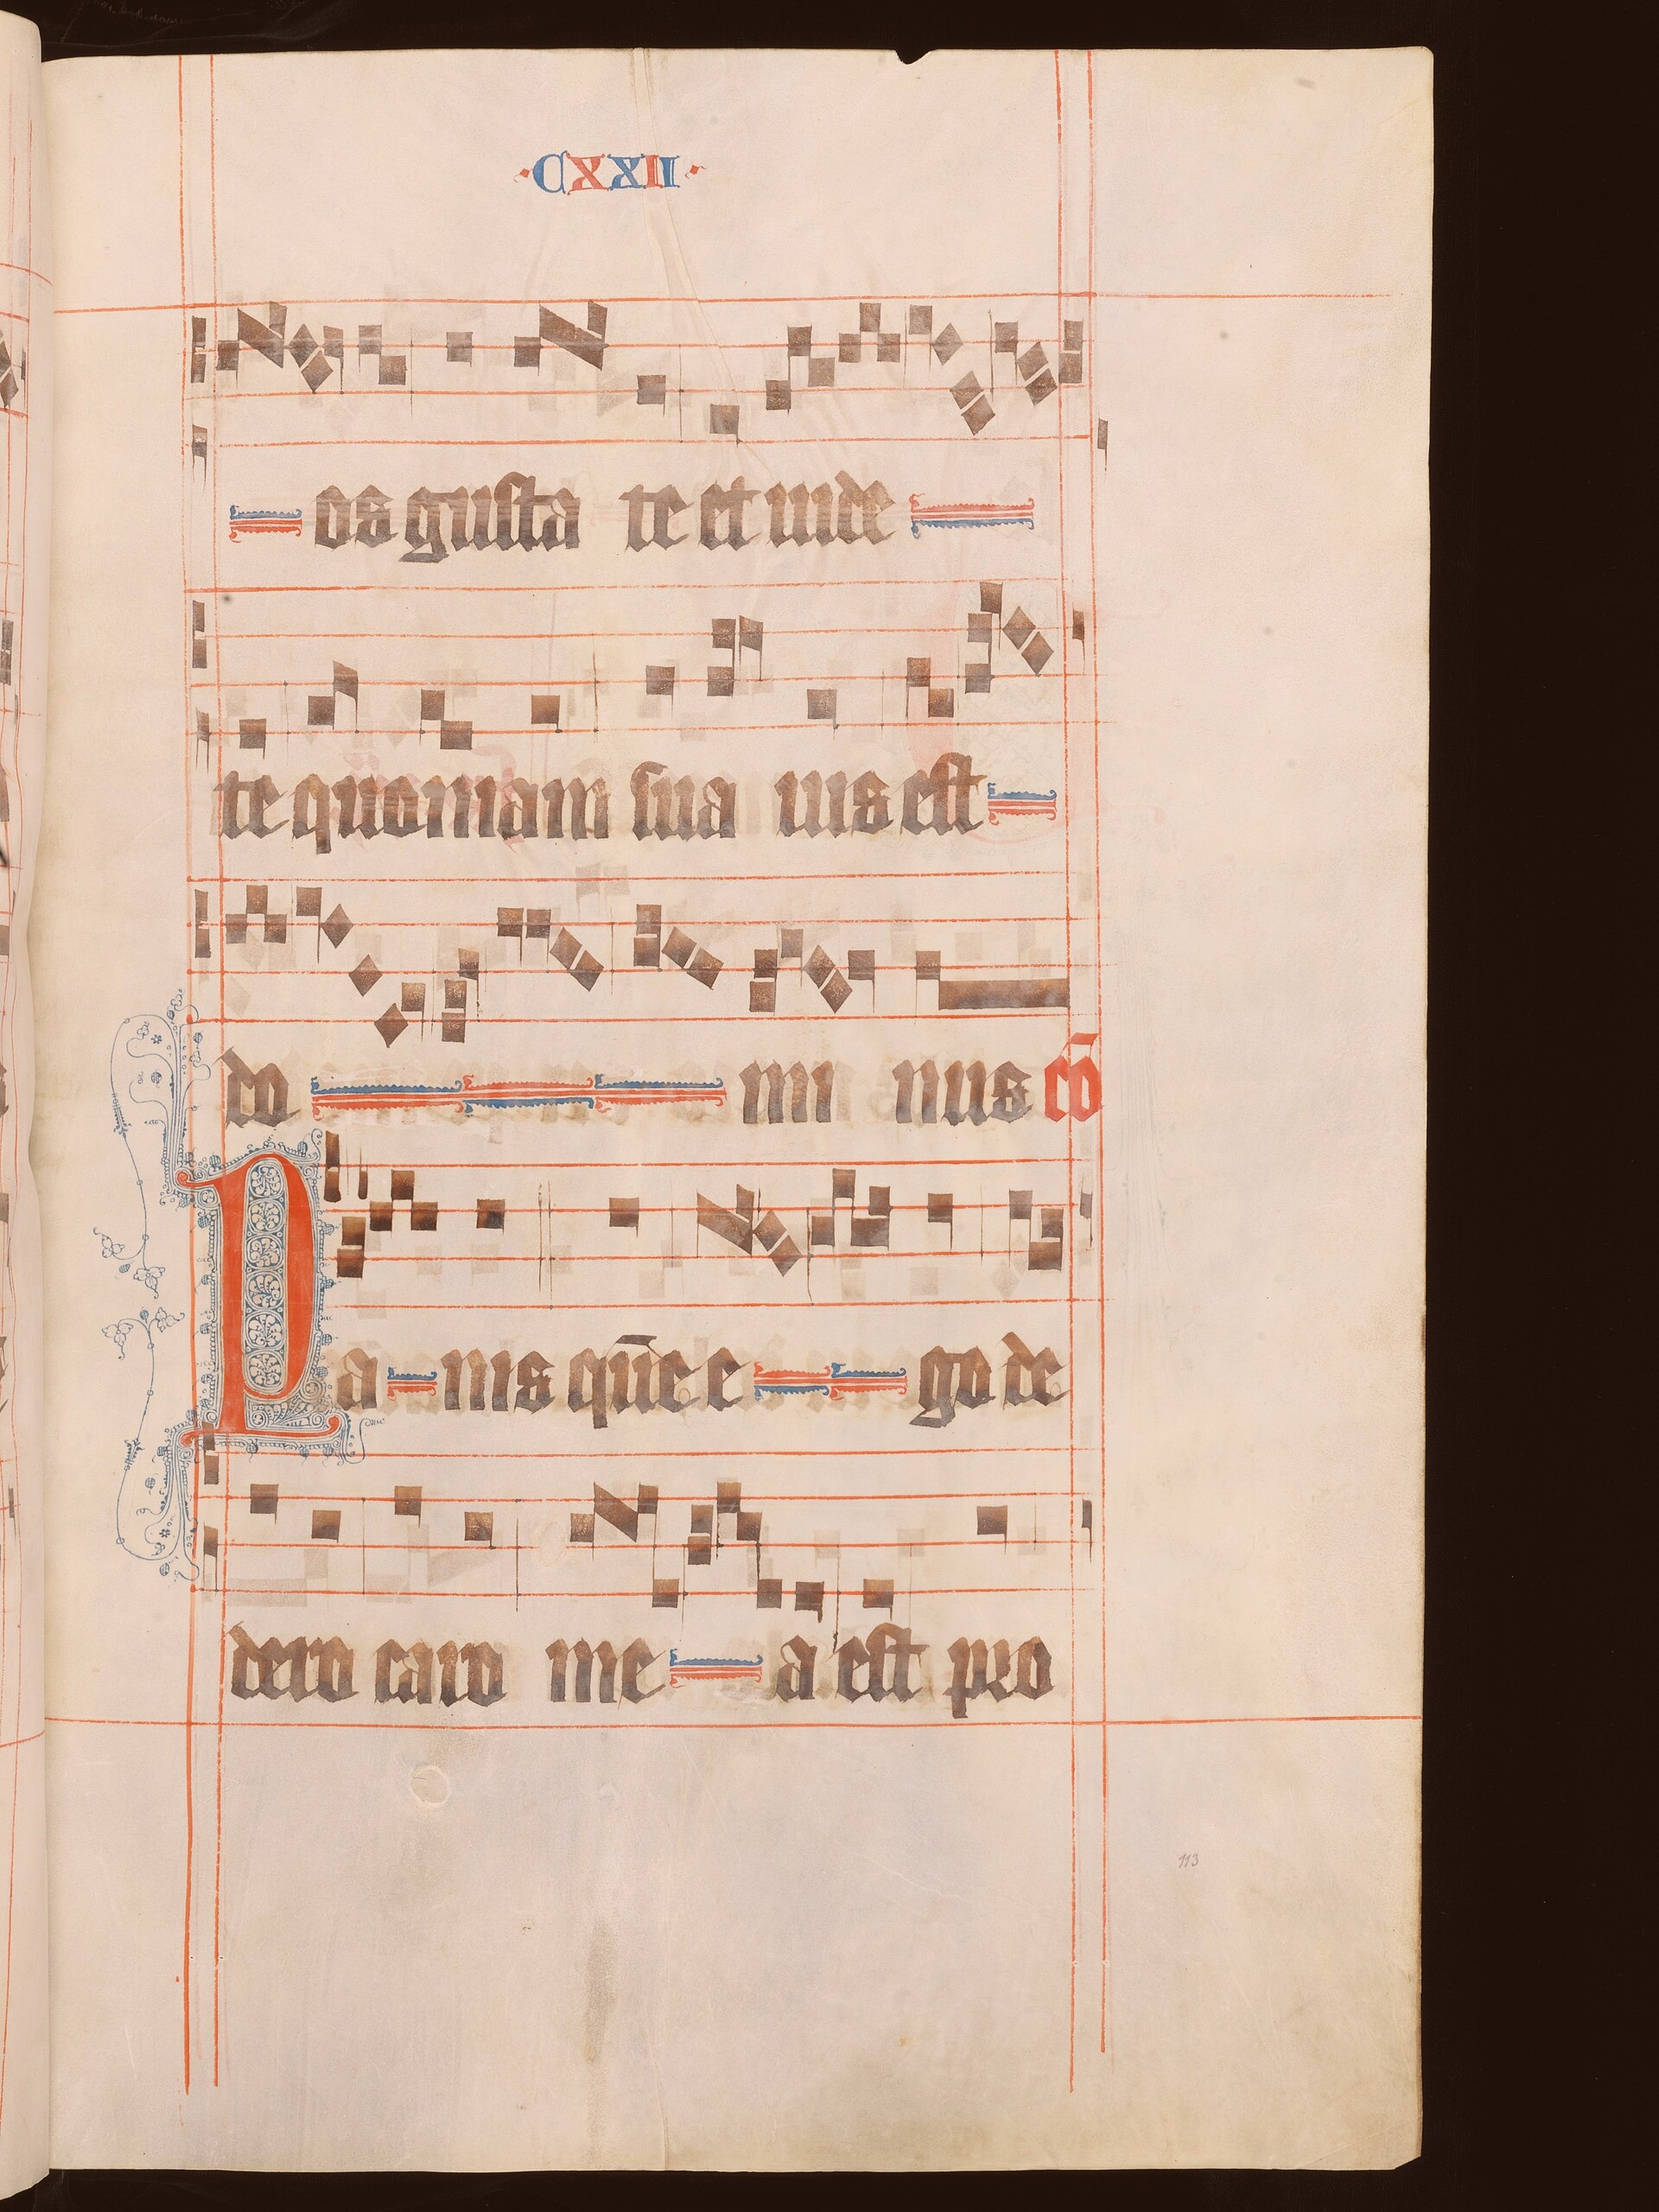 ·CXXII·
os gusta te et uide
te quoniam sua uis est
do mi nus cō
Pa nis quē e go de
dero caro me a est pro
113